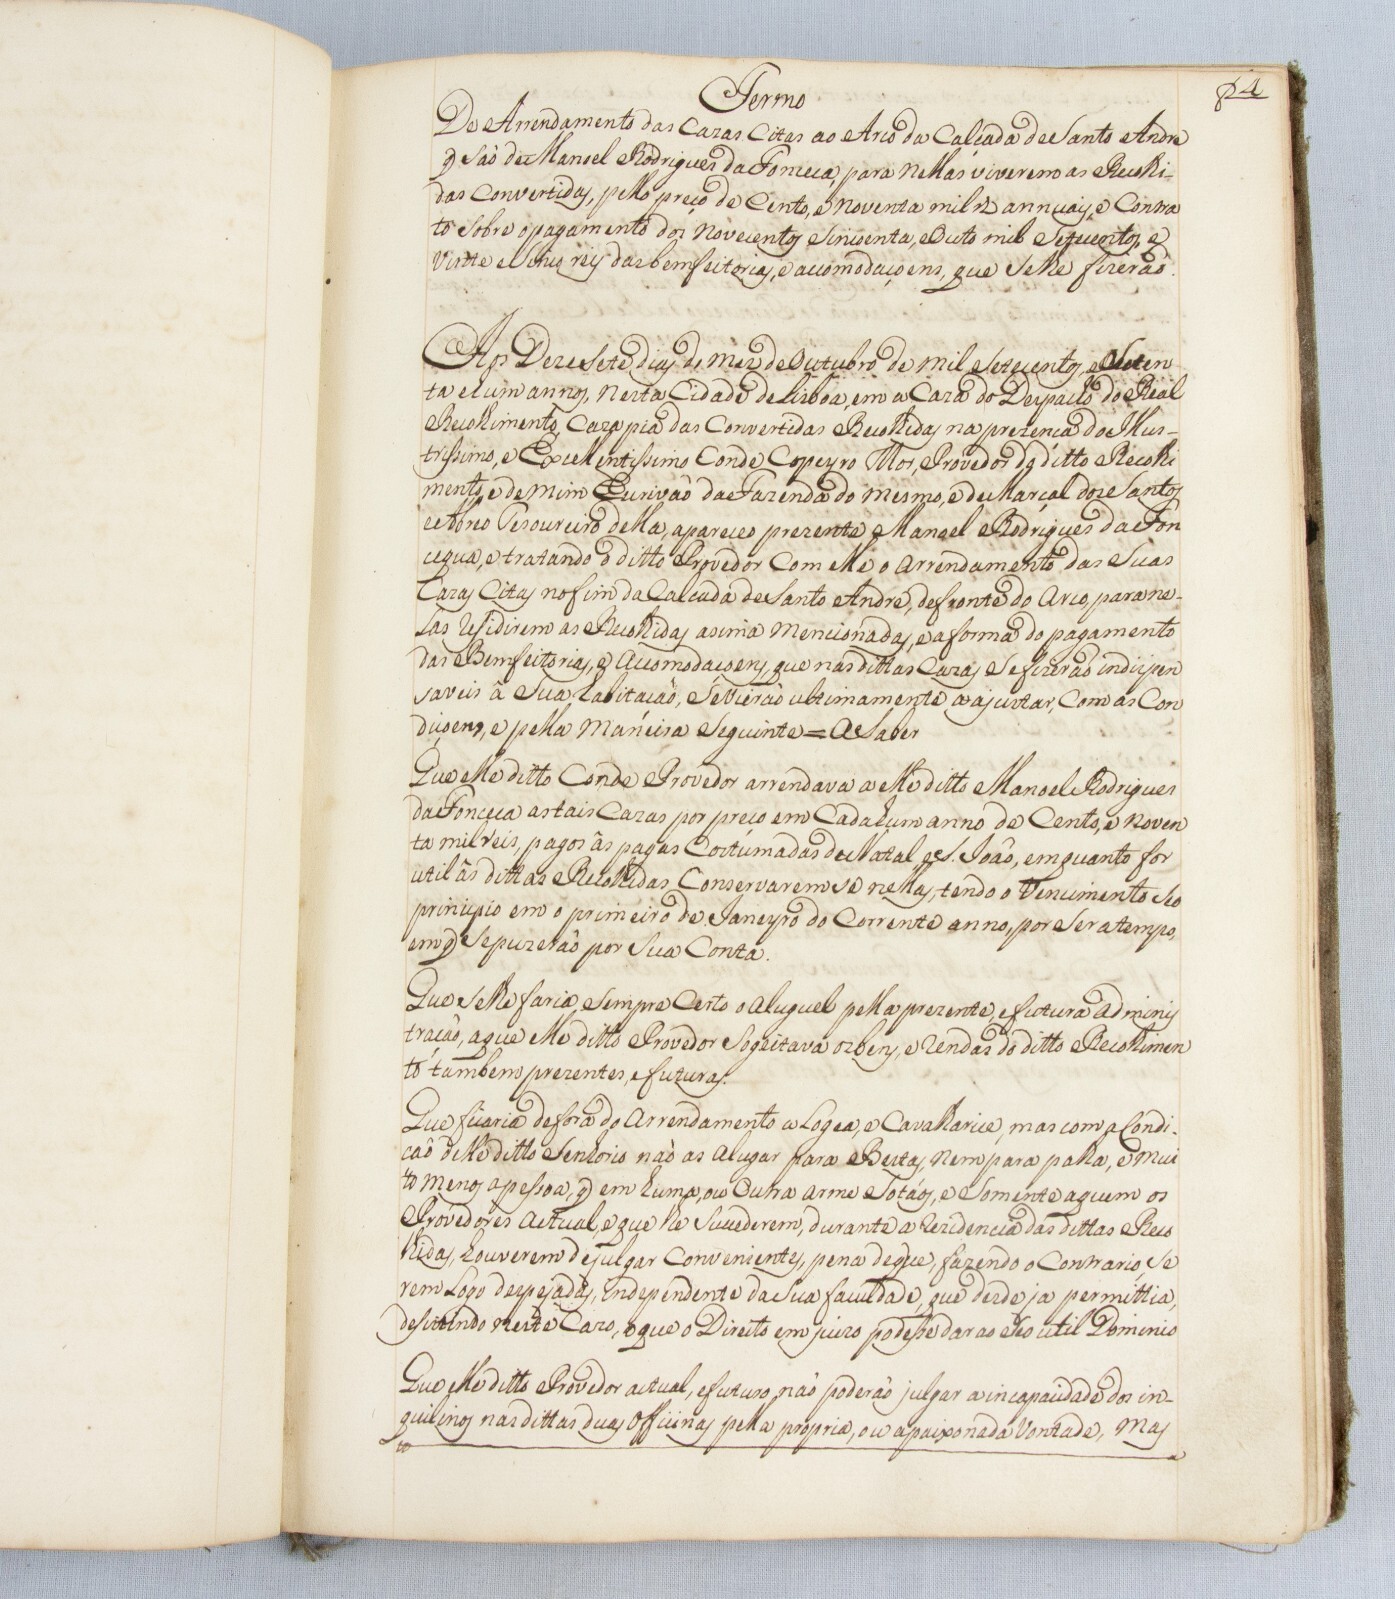 24
Termo
De Arrendamento das Cazas Citas ao Arco da Calçada de Santo Andre
q̃ saõ de Manoel Rodrigues da Fonceca, para nellas viverem as Recolhi-
das Convertidas, pello preço de Cento, e noventa mil rs annuaes, e Contra
to sobre o pagamento dos Novecentos Sincoenta, e Outo mil Setecentos, e
Vinte e Sinco reis das bemfeitorias, e acomodaçoens, que se lhe fizeraõ.
Aos Dezesete dias do mez de Outubro de mil Setecentos, e Seten
ta e hum annos, nesta Cidade de Lisboa, em a Caza do Despacho do Real
Recolhimento, Caza pia das Convertidas Recolhidas na prezença do Illus-
trissimo, e Excellentissimo Conde Copeyro Mor, Provedor do ditto Recolhi
mento, e de mim Escrivaõ da Fazenda do mesmo, e de Marçal dos Santos
e Thesoureiro della, apareceo prezente Manoel Rodrigues da Fon
cequa, e tratando o ditto Provedor Com elle o Arrendamento das Suas
Cazas Citas no fim da Calçada de Santo Andre, defronte do Arco, para ne-
las rezidirem as Recolhidas asima mencionadas, e a forma do pagamento
das Bemfeitorias, e Acomodaçoens, que nas dittas Cazas se fizeraõ indispen
saveis â Sua habitaçaõ, Se vieraõ ultimamente a ajustar, Com as Con
diçoens, e pella maneira Seguinte = A Saber
Que elle ditto Conde Provedor arrendava a elle ditto Manoel Rodrigues
da Fonceca as tais Cazas por preço em Cada hum anno de Cento, e noven
ta mil reis, pagos âs pagas Costumadas do Natal e S. Joaõ, emquanto for
util âs dittas Recolhidas Conservarem se nellas, tendo o Vencimento seo
principio em o primeiro de Janeyro do Corrente anno, por Ser a tempo,
em q̃ Se puzeraõ por Sua Conta.
Que se lhe faria Sempre Certo o Aluguel pella prezente, e futura Adminis
traçaõ, a que elle ditto Provedor Sogeitava os bens, e rendas do ditto Recolhimen
to tambem prezentes, e futuras.
Que ficaria de fora do Arrendamento a Logea, e Cavalharice, mas com a Condi-
çaõ delle ditto Senhorio naõ as Alugar para Bestas, nem para palha, e mui
to menos a pessoa, q̃ em huma, ou Outra arme Sotaõs, e Somente a quem os
Provedores Actual, e que lhe Sucederem, durante a rezidencia das dittas Reco
lhidas, houverem de julgar Convenientes, pena de que, fazendo o Contrario, Se
rem Logo despejadas, independente da Sua faculdade, que desde ja permittia,
desistindo neste Cazo, o que o Direito em juizo podesse dar ao Seo util Dominio
Que elle ditto Provedor actual, e futuro, naõ poderaõ julgar a incapacidade dos in-
quilinos nas dittas duas Officinas pella propria, ou apaixonada Vontade, Mas